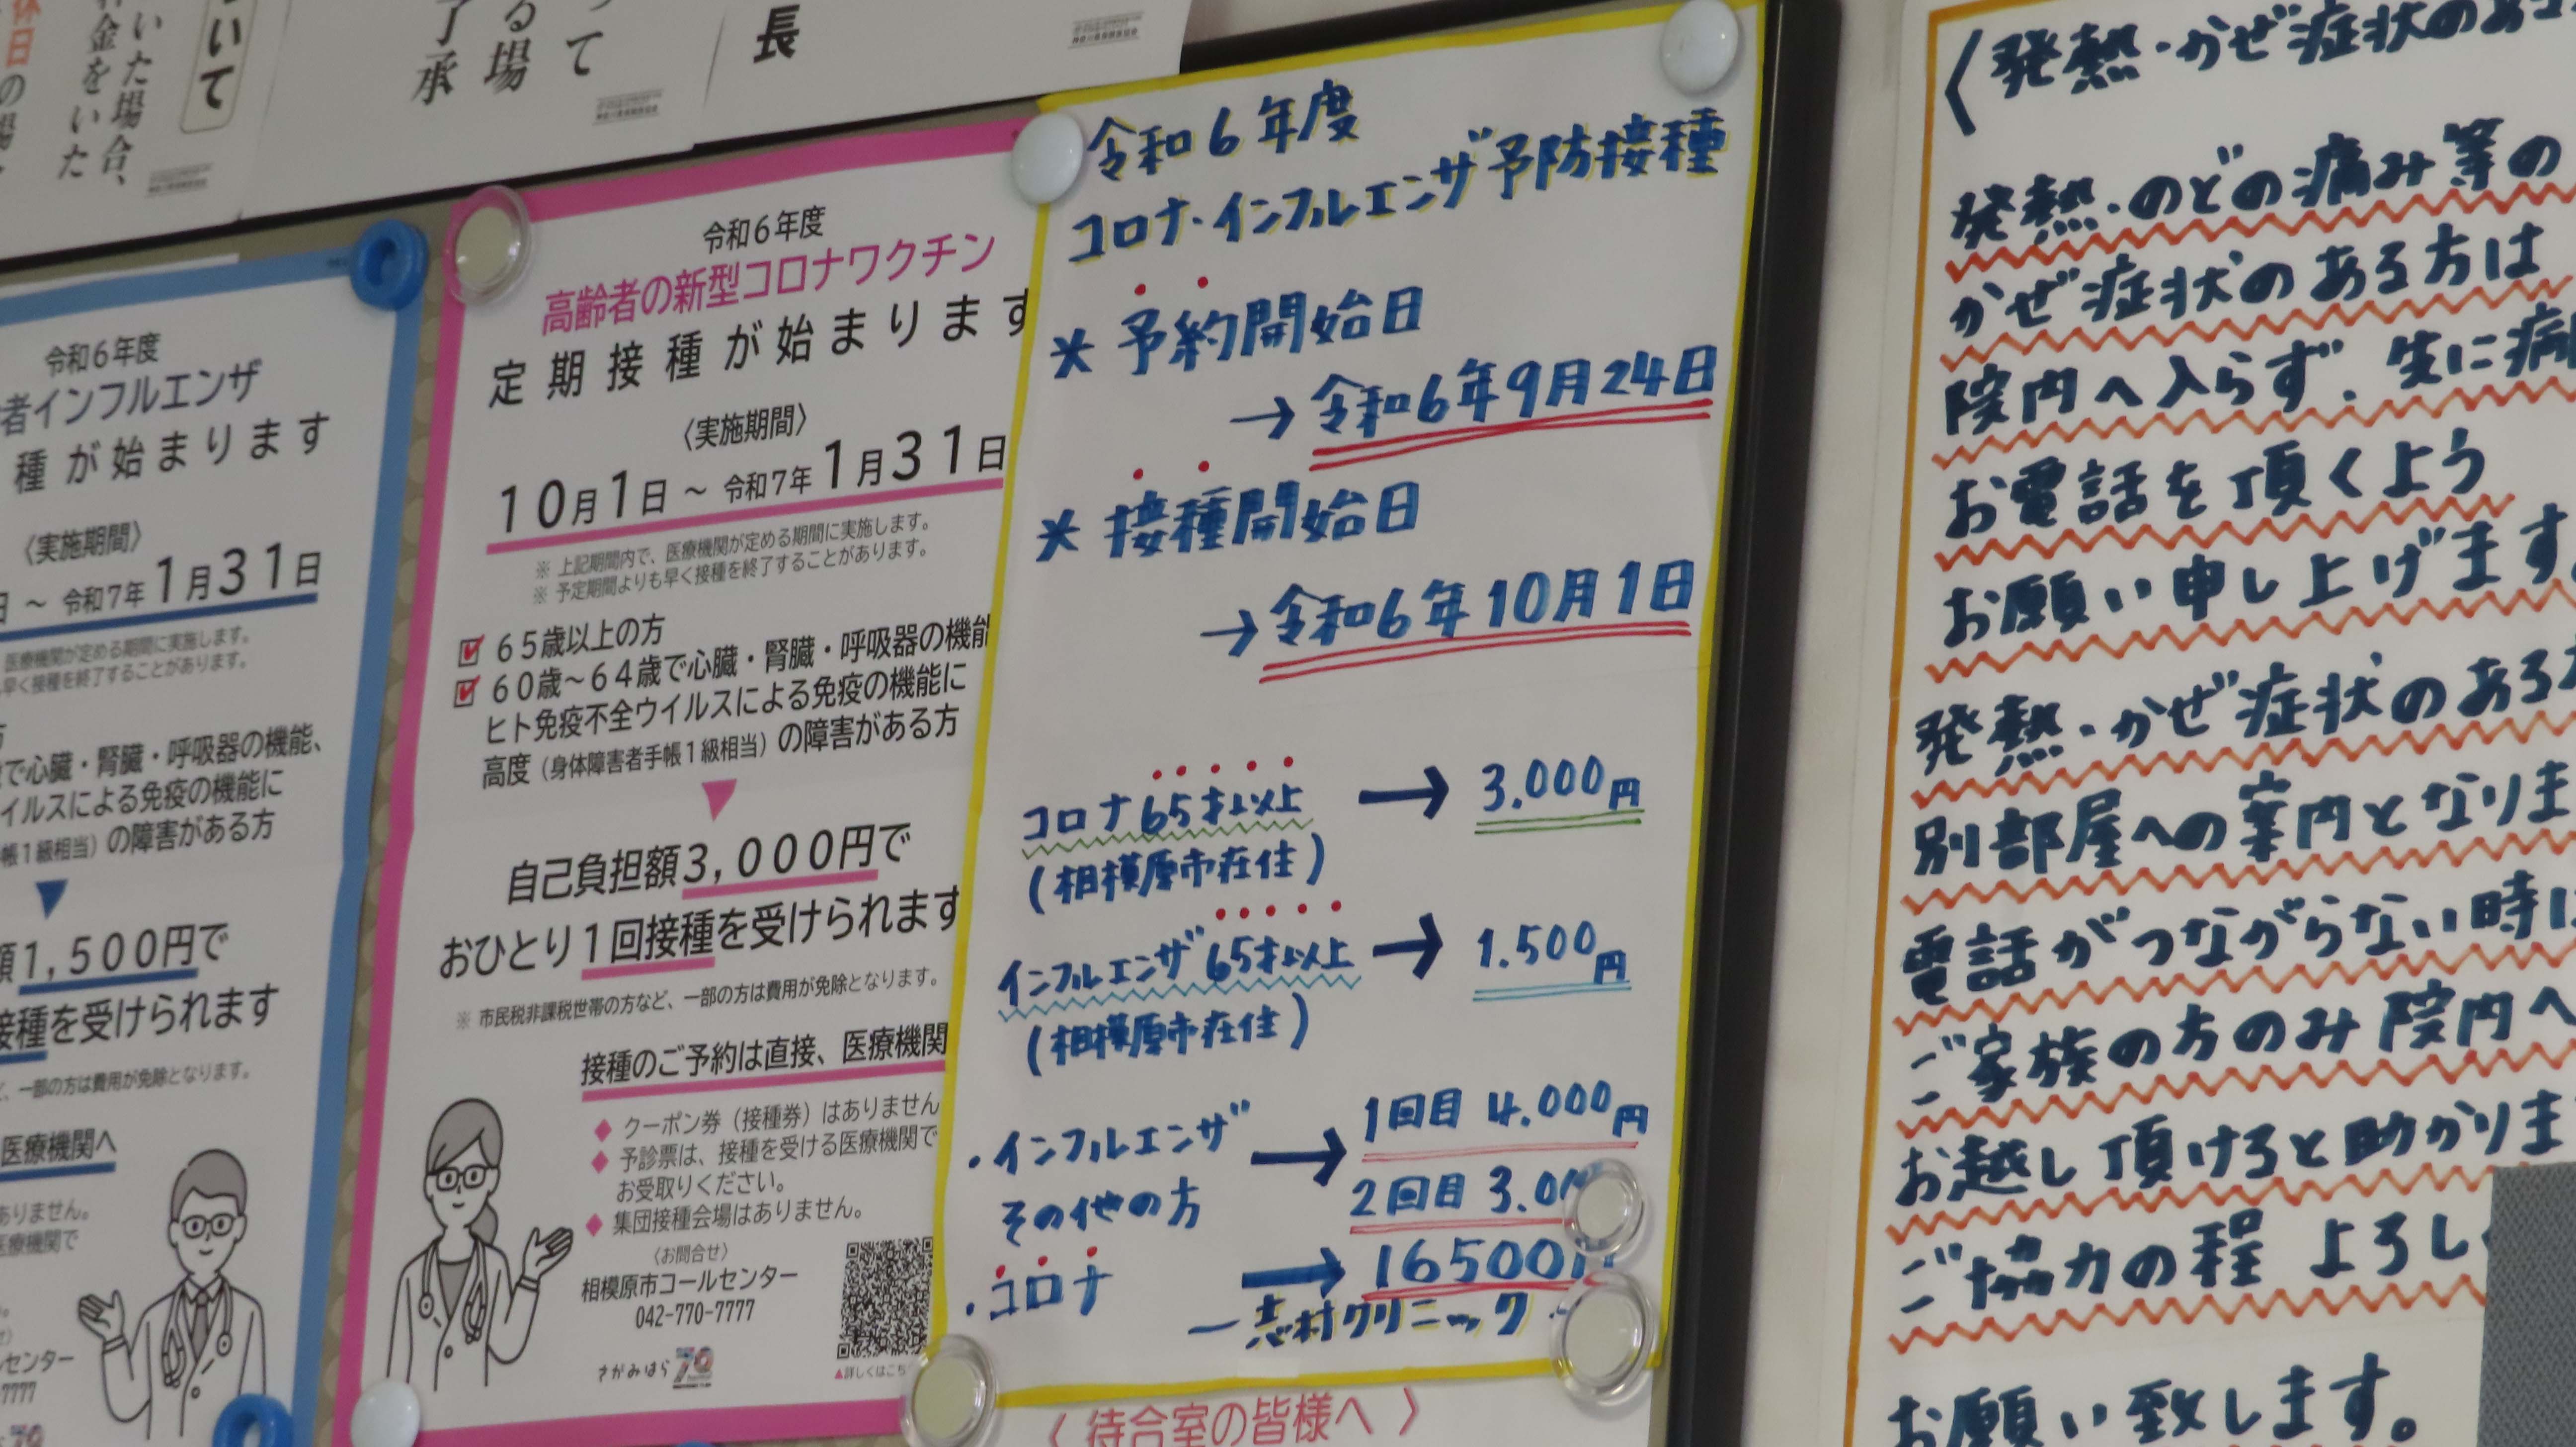 いて
いた場合、
金をいた
休日の場
って
る場
了承
長
令和6年度
者インフルエンザ
種が始まります
〈実施期間〉
日 ～ 令和7年1月31日
医療機関が定める期間に実施します。
早く接種を終了することがあります。
方
で心臓・腎臓・呼吸器の機能、
イルスによる免疫の機能に
帳1級相当）の障害がある方
額1,500円で
接種を受けられます
、一部の方は費用が免除となります。
医療機関へ
ありません。
医療機関で
センター
7777
令和6年度
高齢者の新型コロナワクチン
定期接種が始まります
〈実施期間〉
10月1日 ～ 令和7年1月31日
※ 上記期間内で、医療機関が定める期間に実施します。
※ 予定期間よりも早く接種を終了することがあります。
65歳以上の方
60歳～64歳で心臓・腎臓・呼吸器の機能
ヒト免疫不全ウイルスによる免疫の機能に
高度（身体障害者手帳1級相当）の障害がある方
自己負担額3,000円で
おひとり1回接種を受けられます
※ 市民税非課税世帯の方など、一部の方は費用が免除となります。
接種のご予約は直接、医療機関
◆ クーポン券（接種券）はありません
◆ 予診票は、接種を受ける医療機関で
お受取りください。
◆ 集団接種会場はありません。
〈お問合せ〉
相模原市コールセンター
042-770-7777
さがみはら 70
▲詳しくはこち
令和6年度
コロナ・インフルエンザ予防接種
* 予約開始日
→ 令和6年9月24日
* 接種開始日
→ 令和6年10月1日
コロナ65才以上 → 3.000円
(相模原市在住)
インフルエンザ65才以上 → 1.500円
(相模原市在住)
・インフルエンザ → 1回目 4.000円
その他の方 2回目 3.0
・コロナ → 16500
－志村クリニック－
〈待合室の皆様へ〉
〈発熱・かぜ症状のある
発熱・のどの痛み等の
かぜ症状のある方は
院内へ入らず、先に病
お電話を頂くよう
お願い申し上げます。
発熱・かぜ症状のある方
別部屋への案内となりま
電話がつながらない時は
ご家族の方のみ院内へ
お越し頂けると助かりま
ご協力の程 よろし
お願い致します。